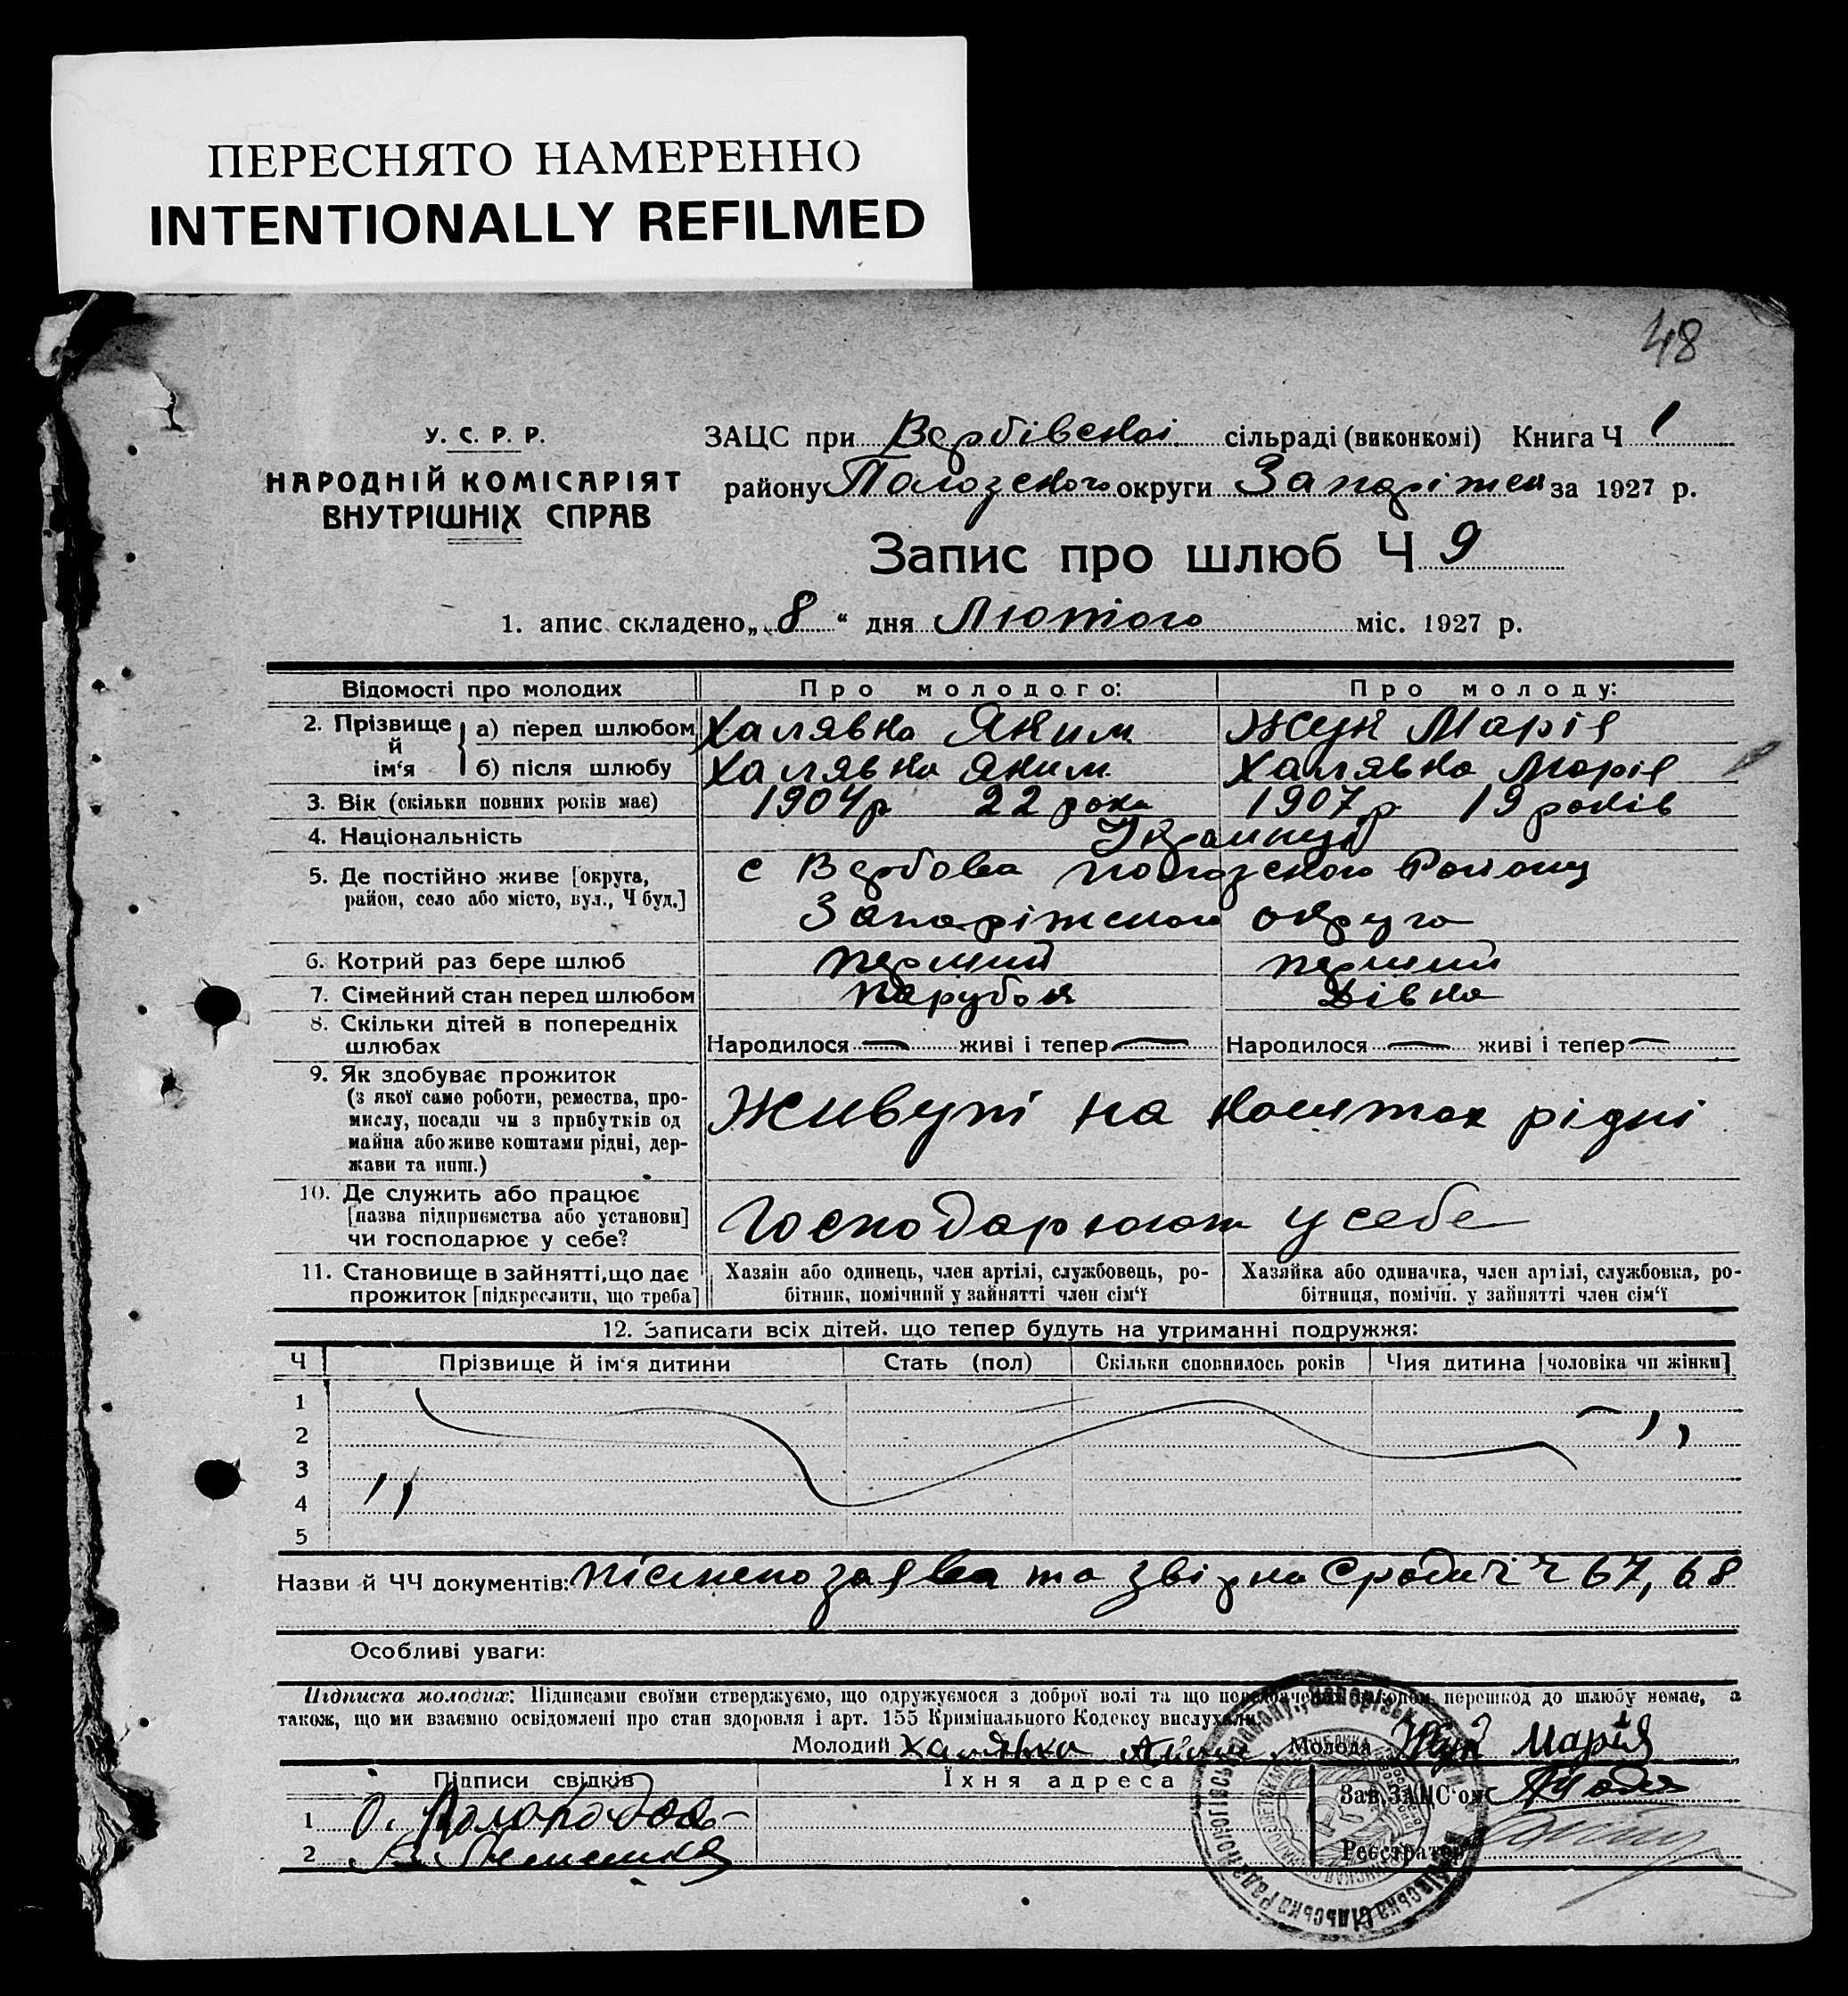 ПЕРЕСНЯТО НАМЕРЕННО
INTENTIONALLY REFILMED
48
У. С. Р. Р.
НАРОДНІЙ КОМІСАРІЯТ
ВНУТРІШНІХ СПРАВ
ЗАЦС при Вербівській сільраді (виконкомі) Книга Ч 1
району Пологського округи за 1927 р.
Запис про шлюб Ч 9
1. апис складено „8“ дня Лютого міс. 1927 р.
Відомості про молодих Про молодого: Про молоду:
2. Прізвище й ім‘я а) перед шлюбом Халявка Яким Жук Марія
б) після шлюбу Халявка Яким Халявка Марія
3. Вік (скільки повних років має) 1904 р 22 роки 1907 р 19 років
4. Національність Українці
5. Де постійно живе [округа, район, село або місто, вул., Ч буд.] с Вербова Пологского Району
Запоріжского округа
6. Котрий раз бере шлюб перший перший
7. Сімейний стан перед шлюбом парубок Дівка
8. Скільки дітей в попередніх шлюбах Народилося — живі і тепер — Народилося — живі і тепер —
9. Як здобуває прожиток
(з якої саме роботи, ремества, про-
мислу, посади чи з прибутків од
майна або живе коштами рідні, дер-
жави та инш.)
Живуть на коштах рідні
10. Де служить або працює
[назва підприємства або установи]
чи господарює у себе?
Господарюют у себе
11. Становище в зайнятті, що дає
прожиток [підкреслити, що треба]
Хазяін або одинець, член артілі, службовець, ро-
бітник, помічний у зайнятті член сім‘ї
Хазяйка або одиначка, член артілі, службовка, ро-
бітниця, помічн. у зайнятті член сім‘ї
12. Записати всіх дітей, що тепер будуть на утриманні подружжя:
Ч Прізвище й ім‘я дитини Стать (пол) Скільки сповнилось років Чия дитина [чоловіка чи жінки]
1
2
3
4
5
Назви й ЧЧ документів: заява та Ч Ч 67, 68
Особливі уваги:
Підписка молодих: Підписами своїми стверджуємо, що одружуємося з доброї волі та що передбачених законом перешкод до шлюбу немає, а
також, що ми взаємно освідомлені про стан здоровля і арт. 155 Кримінального Кодексу вислухали.
Молодий Халявка Молода Жук Марія
Підписи свідків Їхня адреса Зав ЗАЦС‘ом
1
2 Реєстратор